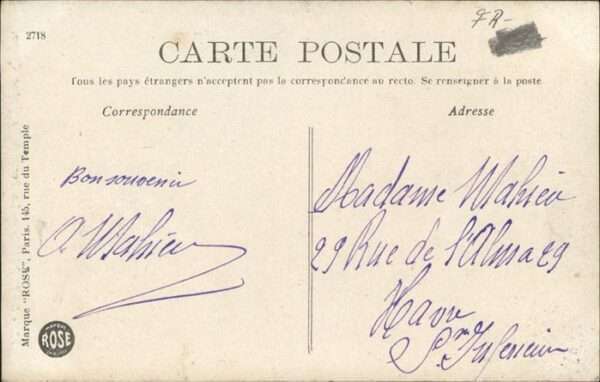 2718
FR-
CARTE POSTALE
Tous les pays étrangers n'acceptent pas la correspondance au recto. Se renseigner à la poste.
Correspondance
Adresse
Bon souvenir
A. Mahieu
Madame Mahieu
29 Rue de l'Alma 29
Havre
S. Inferieure
Marque "ROSE", Paris, 145, rue du Temple
ROSE